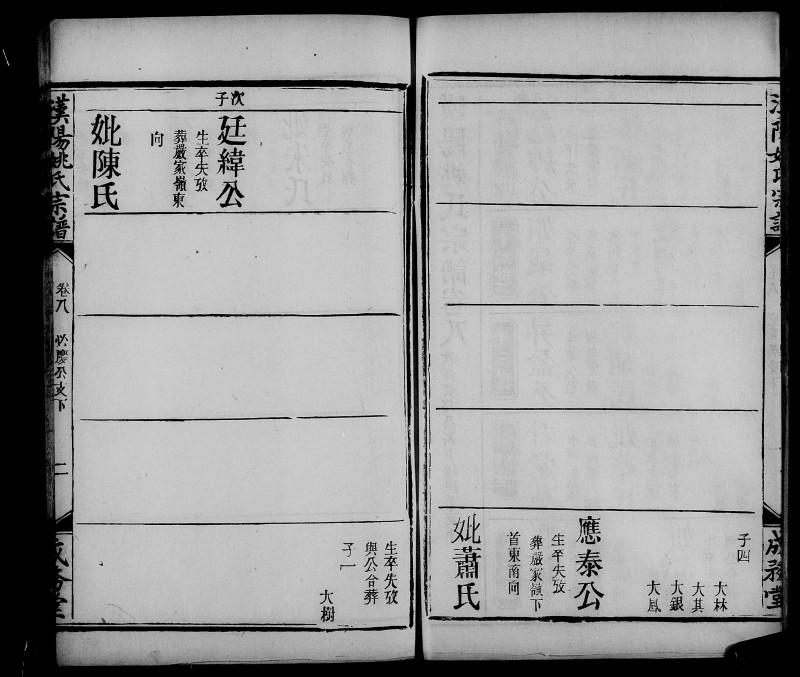 子四
大林
大其
大銀
大鳳
應泰公
生卒失攷
葬嚴家嶺下
首東南向
妣蕭氏
生卒失攷
與公合葬
子一
大樹
次子
廷緯公
生卒失攷
葬嚴家嶺東
向
妣陳氏
漢陽姚氏宗譜
卷八
公支下
二
成務堂